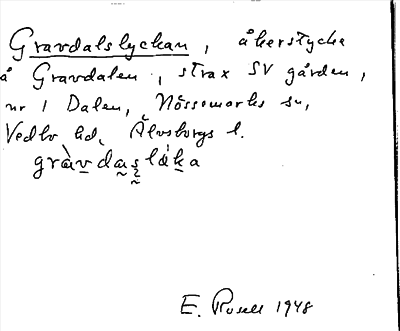 Gravdalslyckan, åkerstycke
å Gravdalen, strax SV gården,
nr 1 Dalen, Nössemarks sn,
Vedbo hd, Älvsborgs l.
E. Rosell 1948